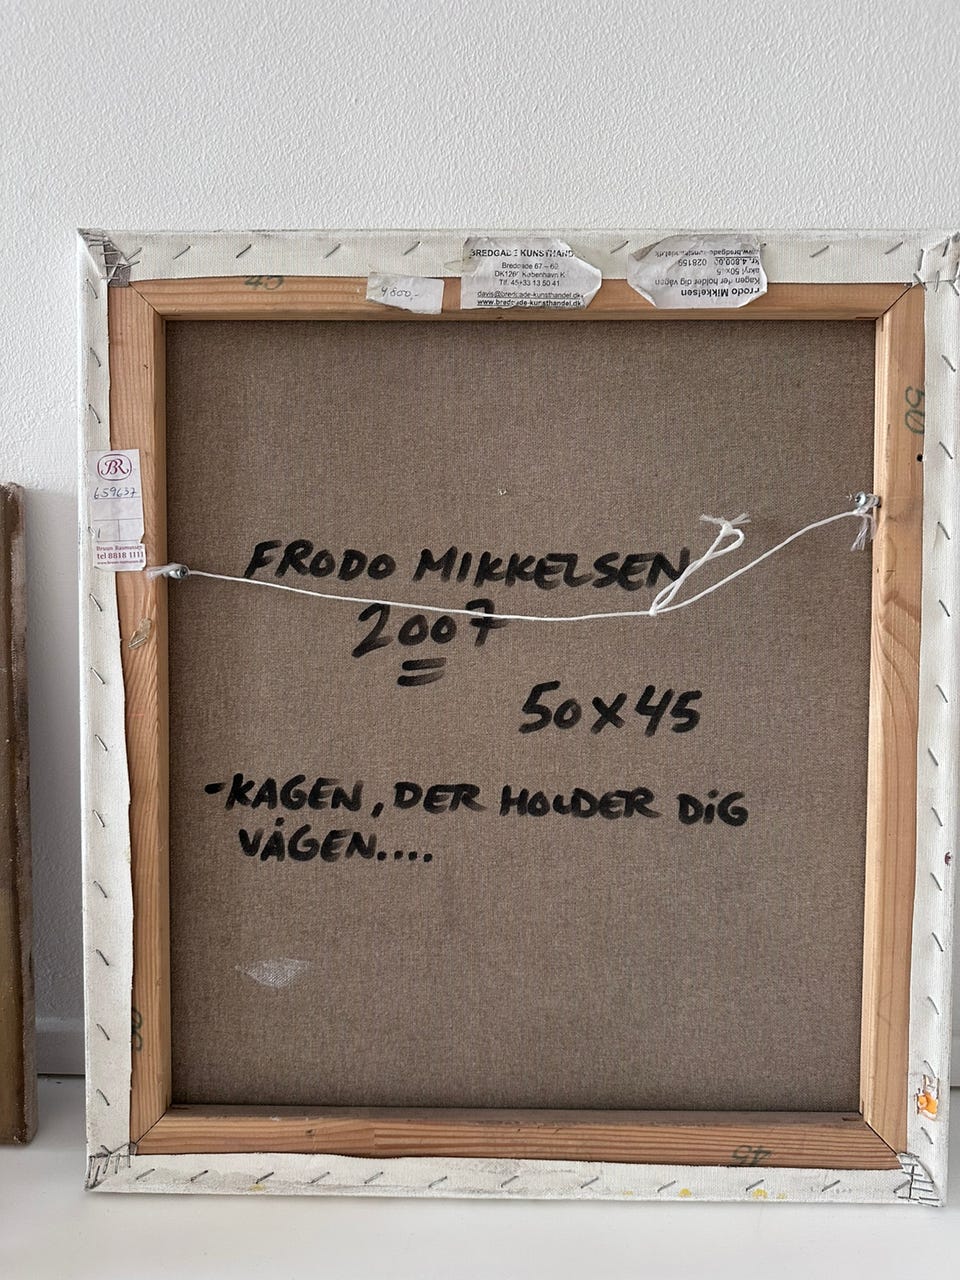 45
4.800,-
BREDGADE KUNSTHAND
Bredgade 67 – 69
København K
Tlf. 45+33 13 50 41
davis@bredgade-kunsthandel.dk
www.bredgade-kunsthandel.dk
Frodo Mikkelsen
Kagen der holder dig vågen
akryl 50x45
Kr. 4.800,00 028159
www.bredgade-kunsthandel.dk
50
BR
659637
1
Bruun Rasmussen
tel 8818 1111
www.bruun-rasmussen.dk
FRODO MIKKELSEN
2007
50X45
-KAGEN, DER HOLDER DIG
VÅGEN....
50
45